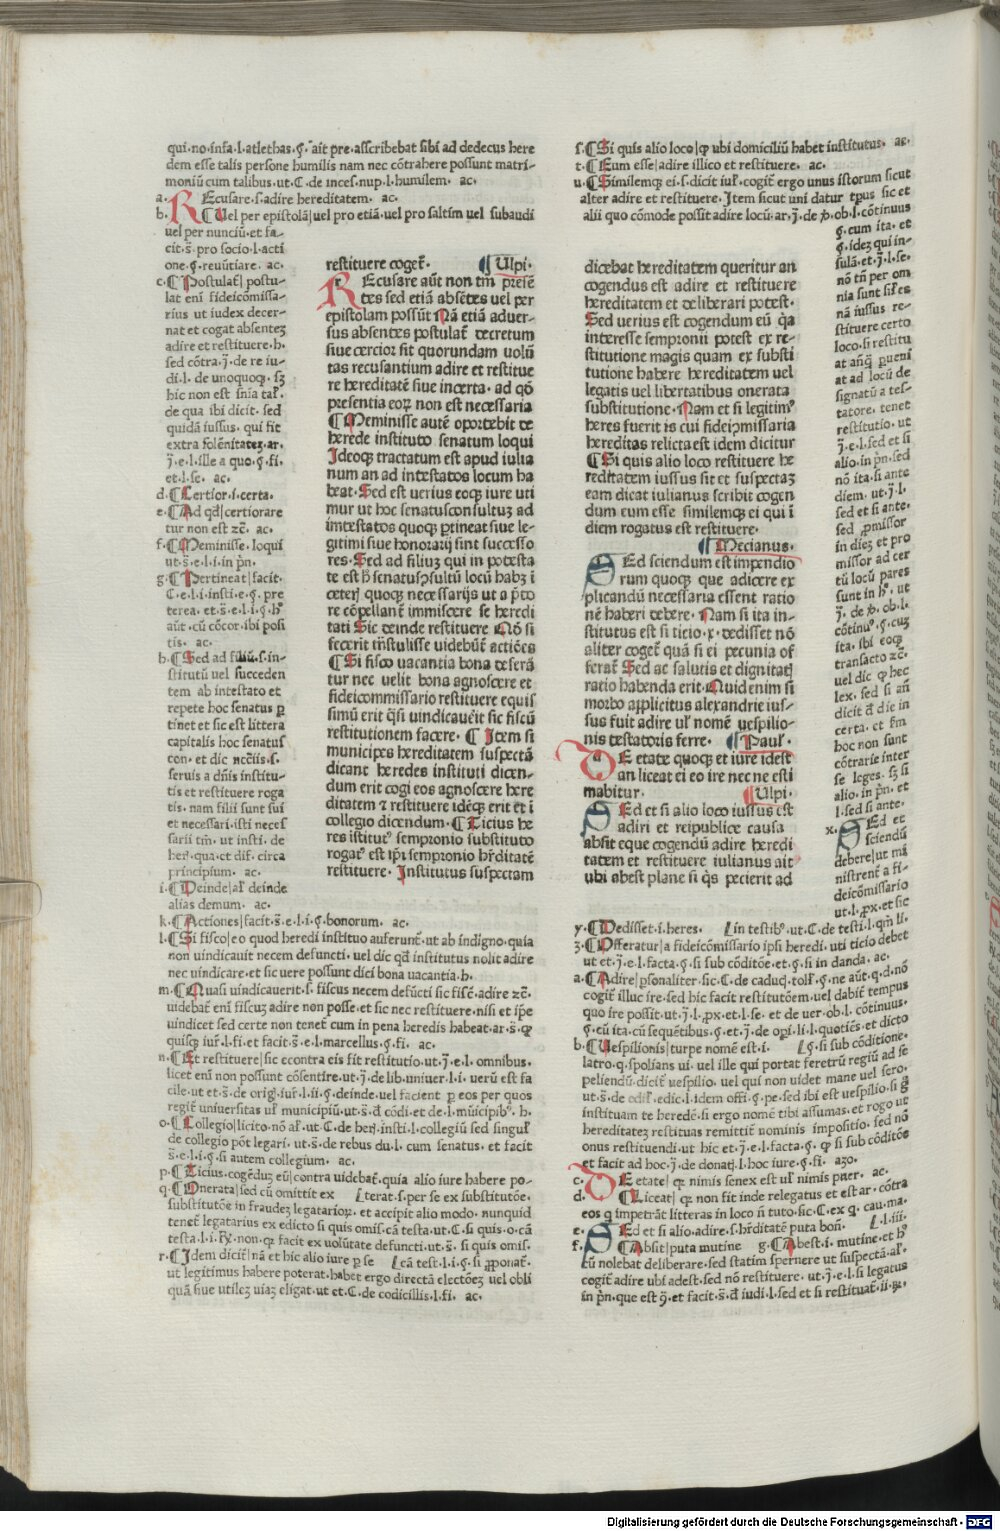 qui·no·infa·l·atlethas·ꝫ·ait pre·asscribebat sibi ad dedecus here
dem esse talis persone humilis nam nec cōtrahere possunt matri-
moniū cum talibus·ut·C·de inces·nup·l·humilem· ac·
a· REcusare·s·adire hereditatem· ac·
b· ¶Uel per epistolā|uel pro etiā·uel pro saltim uel subaudi
uel per nunciū·et fa-
cit·s̄·pro socio·l·acti
one·§·renūtiare· ac·
c·¶Postulat̄|postu-
lat eni fideicōmissa-
rius ut iudex decer-
nat et cogat absentez
adire et restituere·h·
sed cōtra·j̄·de re iu-
di·l·de unoquoqꝫ· sꝫ
hic non est sn̄ia tal̄·
de qua ibi dicit· sed
quidā iussus· qui fit
extra solēnitatez·ar·
j̄·e·l·ille a quo·§·fi·
et·l·se· ac·
d·¶Certior·i·certa·
e·¶Ad qd|certiorare
tur non est ꝛc̄· ac·
f·¶Meminisse·loqui
ut·s̄·e·l·i·in pn̄·
g·¶Pertineat|facit·
C·e·l·i·insti·e·§·pre
terea·et·s̄·e·l·i·§·h°
aūt·cū cōcor·ibi posi
tis· ac·
h·¶Sed ad filiū·s·in-
stitutū uel succeden
tem ab intestato et
repete hoc senatus p
tinet et sic est littera
capitalis hoc senatus
con·et dic nc̄ciis·s·
seruis a dn̄is institu-
tis et restituere roga
tis·nam filii sunt sui
et necessari·isti neces
sarii tm̄·ut insti·de
her̄·qua·et dif·circa
principium· ac·
i·¶Deinde|al̄ deinde
alias demum· ac·
k·¶Actiones|facit·s̄·e·l·i·§·bonorum· ac·
l·¶Si fisco|eo quod heredi instituo auferunt̄·ut ab indigno·quia
non uindicauit necem defuncti·uel dic qd institutus nolit adire
nec uindicare·et sic uere possunt dici bona uacantia·h·
m·¶Quasi uindicauerit·s·fiscus necem defūcti sic fisc̄·adire ꝛc̄·
uidebat̄ eni fiscuz adire non posse·et sic nec restituere·nisi et ipe
uindicet sed certe non tenet̄ cum in pena heredis habeat·ar·s̄·qꝫ
quisqꝫ iur̄·l·fi·et facit·s̄·e·l·marcellus·§·fi· ac·
n·¶Et restituere|sic econtra eis fit restitutio·ut·j̄·e·l·omnibus·
licet eni non possunt cōsentire·ut·j̄·de lib·uniuer·l·i·uerū est fa
cile·ut et·s̄·de orig·iur̄·l·ii·§·deinde·uel facient p eos per quos
regit̄ uniuersitas ul̄ municipiū·ut·s̄·qd cōdi·et de·l·mūicipib°·h·
o·¶Collegio|licito·nō al̄·ut·C·de her̄·insti·l·collegiū sed singul̄
de collegio pōt legari·ut·s̄·de rebus du·l·cum senatus·et facit
s̄·e·l·i·§·si autem collegium· ac·
p·¶Ticius·cogēduz eū|contra uidebat̄·quia alio iure habere po-
q·¶Onerata|sed cū omittit ex [terat·s·per se ex substitutōe·
substitutōe in fraudez legatarioꝝ·et accipit alio modo·nunquid
tenet̄ legatarius ex edicto si quis omis·cā testa·ut·C·si quis·o·cā
testa·l·i·Rx̄·non·qꝫ facit ex uolūtate defuncti·ut·s̄·si quis omis·
r·¶Idem dicit̄|nā et hic alio iure p se [cā test·l·i·§·si proponat̄·
ut legitimus habere poterat·habet ergo directā electōez uel obli
quā siue utilez uiaz eligat·ut et·C·de codicillis·l·fi· ac·
restituere coget̄· ¶Ulpi·
REcusare aūt non tm̄ presē
tes sed etiā absētes uel per
epistolam possūt Nā etiā aduer-
sus absentes postulat̄ decretum
siue cercior sit quorundam uolū
tas recusantium adire et restitue
re hereditatē siue incerta·ad qō
presentia eoꝝ non est necessaria
¶Meminisse autē oportebit de
herede instituto senatum loqui
Ideoqꝫ tractatum est apud iulia
num an ad intestatos locum ha
beat·Sed est uerius eoqꝫ iure uti
mur ut hoc senatusconsultuz ad
intestatos quoqꝫ ptineat siue le-
gitimi siue honorarij sint successo
res·Sed ad filiuz qui in potesta
te est h̄ senatusꝯsultū locū habꝫ i
ceterj quoqꝫ necessarijs ut a pto
re cōpellant̄ immiscere se heredi
tati Sic deinde restituere Nō si
fecerit trāstulisse uidebūt̄ actiōes
¶Si fisco uacantia bona deferā
tur nec uelit bona agnoscere et
fideicommissario restituere equis
simū erit q̄si uindicauēit sic fiscū
restitutionem facere· ¶Item si
municipes hereditatem suspectā
dicant heredes instituti dicen-
dum erit cogi eos agnoscere here
ditatem ⁊ restituere idēqꝫ erit et i
collegio dicendum·¶Ticius he
res istitut° sempronio substituto
rogat° est ipi sempronio hr̄ditatē
restituere·Institutus suspectam
s·¶Si quis alio loco|qꝫ ubi domiciliū habet iustitutus· ac·
t·¶Eum esse|adire illico et restituere· ac·
u·¶Similemqꝫ ei·s·dicit iul̄·cogit̄ ergo unus istorum sicut
alter adire et restituere·Item sicut uni datur tp̄us sic et
alii quo cōmode possit adire locū·ar·j̄·de ꝟ·ob·l·cōtinuus
§·cum ita·et
§·idez qui in-
sulā·et·j̄·l·se·
nō tn̄ per om
nia sunt sil̄es
nā iussus re-
stituere certo
loco·si restitu
at anq̄ pueni
at ad locū de
signatū a tes-
tatore·tenet
restitutio·ut
j̄·e·l·sed et si
alio·in pn̄·sed
nō ita·si ante
diem·ut·j̄·l·
sed et si ante·
sed pmissor
in diez et pro
missor ad cer
tū locū pares
sunt in h°·ut
j̄·de ꝟ·ob·l·
cōtinu°·§·cuz
ita·ibi eoqꝫ
transacto ꝛc̄·
uel dic qꝫ hec
lex·sed si añ
dicit̄ de die in
certa·et sm̄
hoc non sunt
cōtrarie inter
se leges·sꝫ si
alio·in pn̄·et
l·sed si ante·
x· SEd et
sciendū
debere|ut mi
nistrent̄ a fi-
deicōmissario
ut·l·px·et sic
dicebat hereditatem queritur an
cogendus est adire et restituere
hereditatem et deliberari potest·
Sed uerius est cogendum eū q̄a
interesse sempronii potest ex re-
stitutione magis quam ex substi
tutione habere hereditatem uel
legatis uel libertatibus onerata
substitutione·Nam et si legitim°
heres fuerit is cui fideipmissaria
hereditas relicta est idem dicitur
¶Si quis alio loco restituere he
reditatem iussus sit et suspectaz
eam dicat iulianus scribit cogen
dum eum esse similemqꝫ ei qui i
diem rogatus est restituere·
¶Mecianus·
SEd sciendum est impendio
rum quoqꝫ que adicere ex
plicandū necessaria essent ratio
nē haberi debere·Nam si ita in-
stitutus est si ticio·x·dedisset nō
aliter coget̄ quā si ei pecunia of
ferat̄ Sed ac salutis et dignitatj
ratio habenda erit·Quid enim si
morbo applicitus alexandrie ius-
sus fuit adire ul̄ nomē uespilio-
nis testatoris ferre· ¶Paul̄·
DE etate quoqꝫ et iure idest
an liceat ei eo ire nec ne esti
mabitur· ¶Ulpi·
SEd et si alio loco iussus est
adiri et reipublice causa
absit eque cogendū adire heredi
tatem et restituere iulianus ait
ubi abest plane si q̄s pecierit ad
y·¶Dedisset·i·heres· [in testib°·ut·C·de testi·l·qm̄ li·
z·¶Offeratur|a fideicōmissario ipsi heredi·uti ticio debet
ut et·j̄·e·l·facta·§·si sub cōditōe·et·§·si in danda·ac·
a·¶Adire|psonaliter·sic·C·de caduc̄·toll̄·§·ne aūt·q·d·nō
cogit̄ illuc ire·sed hic facit restitutōem·uel dabit̄ tempus
quo ire possit·ut·j̄·l·px·et·l·se·et de uer·ob·l·cōtinuus·
§·cū ita·cū sequētibus·§·et·j̄·de opi·li·l·quotiēs·et dicto
b·¶Uespilionis|turpe nomē est·i· [§·si sub cōditione·
latro·q·spolians ui·uel ille qui portat feretrū regiū ad se
peliendū·dicit̄ uespilio·uel qui non uidet mane uel sero·
ut·s̄·de edil̄·edic·l·idem offi·§·pe·sed ibi est uespilio·si g̊
instituam te heredē·si ergo nomē tibi assumas·et rogo ut
hereditatez restituas remittit̄ nominis impositio·sed nō
onus restituendi·ut hic et·j̄·e·l·facta·§·qꝫ si sub cōditōe
et facit ad hoc·j̄·de donatj·l·hoc iure·§·fi· azo·
c· DE etate|qꝫ nimis senex est ul̄ nimis puer· ac·
d· ¶Liceat|qꝫ non fit inde relegatus et est ar·cōtra
eos q impetrāt litteras in loco n̄ tuto·sic·C·ex q·cau·ma·
e· SEd et si alio·adire·s·hr̄ditatē puta bon̄· [l·iii·
f· ¶Absit|puta mutine g·¶Abest·i·mutine·et h°
cū nolebat deliberare·sed statim spernere ut suspectā·al̄·
cogit̄ adire ubi adest·sed nō restituere·ut·j̄·e·l·si legatus
in pn̄·que est ꝯ̄·et facit·s̄·de iudi·l·sed et si restituat̄·ii·R̄·
Digitalisierung gefördert durch die Deutsche Forschungsgemeinschaft · DFG